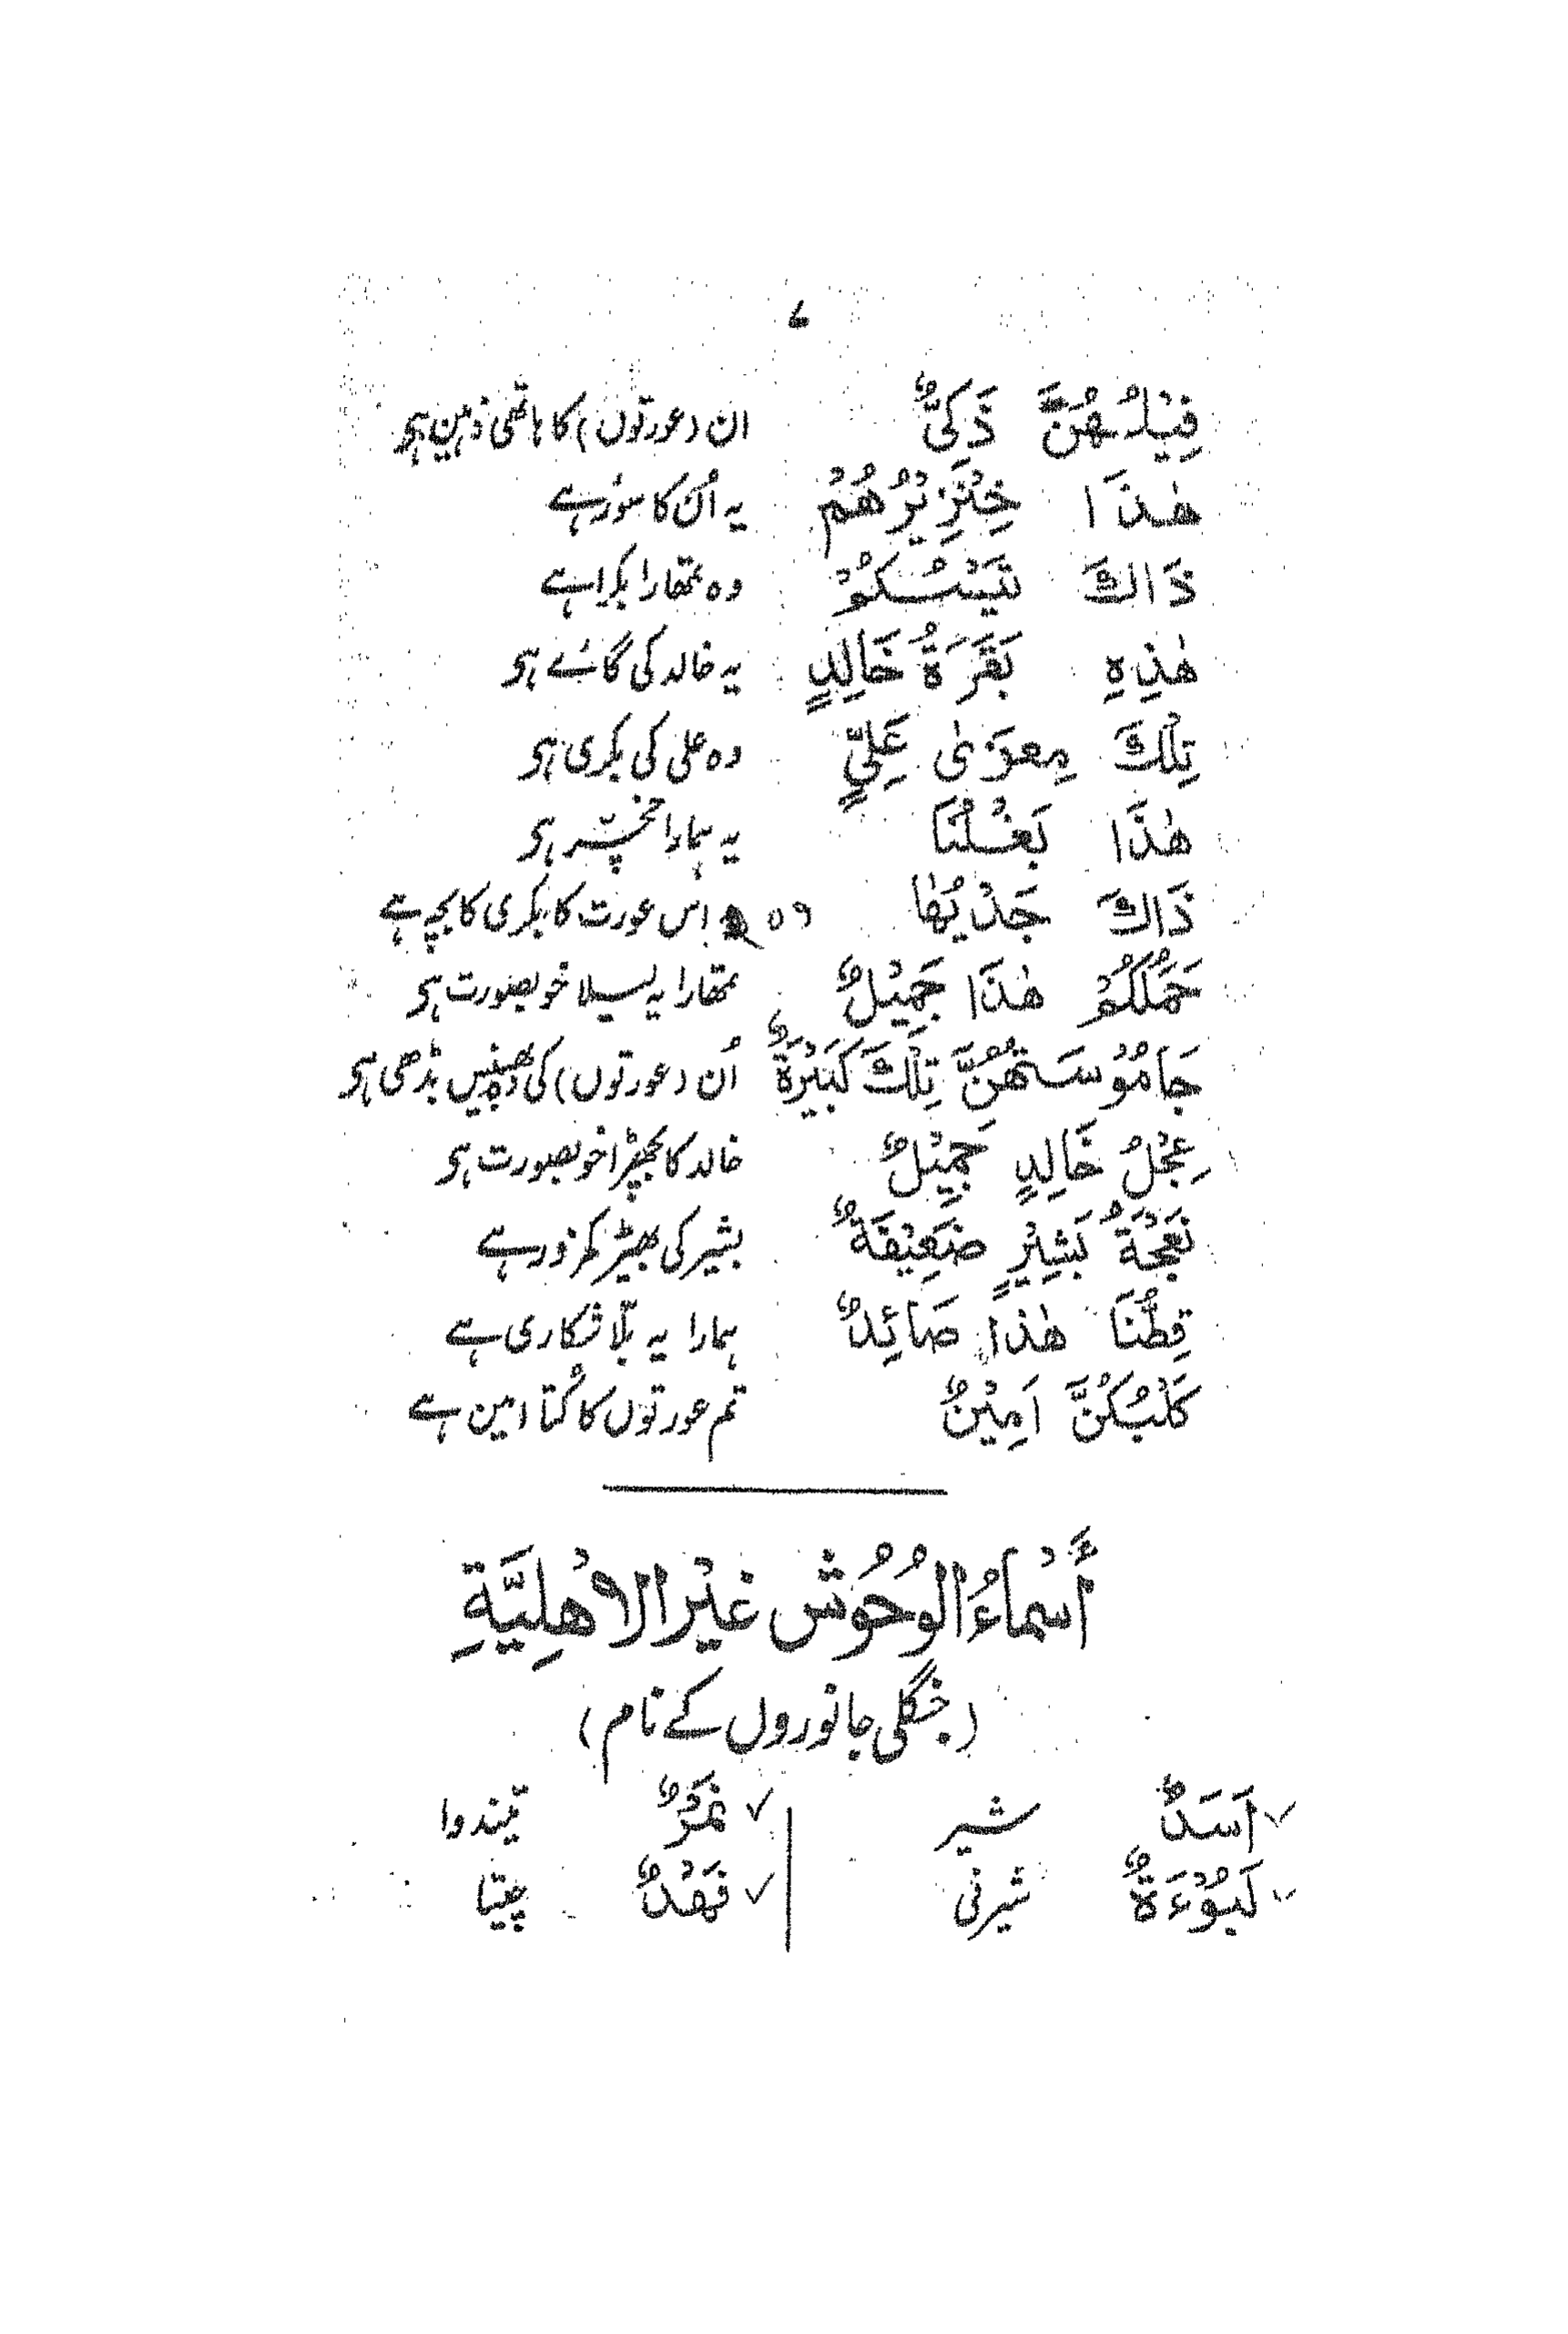 ۷
فِيْلُهُنَّ ذَكِيٌّ ان (عورتوں) کا ہاتھی ذہین ہی
هٰذَا خِنْزِيْرُهُمْ یہ اُن کا سور ہے
ذَاكَ تَيْسُكُمْ وہ تمھارا بکرا ہے
هٰذِهٖ بَقَرَةُ خَالِدٍ یہ خالد کی گائے ہی
تِلْكَ مِعْزىٰ عَلِيٍّ وہ علی کی بکری ہی
هٰذَا بَغْلُنَا یہ ہمارا خچّر ہی
ذَاكَ جَدْيُهَا وہ اس عورت کا بکری کا بچہ ہے
حَمَلُكُمْ هٰذَا جَمِيْلٌ تمھارا یہ لیلا خوبصورت ہی
جَامُوْسَتُهُنَّ تِلْكَ كَبِيْرَةٌ اُن (عورتوں) کی وہ بھینس بڈھی ہی
عِجْلُ خَالِدٍ جَمِيْلٌ خالد کا بچھڑا خوبصورت ہی
نَعْجَةُ بَشِيْرٍ ضَعِيْفَةٌ بشیر کی بھیڑ کمزور ہے
قِطُّنَا هٰذا صَائِدٌ ہمارا یہ بلّا شکاری ہے
كَلْبُكُنَّ اَمِيْنٌ تم عورتوں کا کُتا امین ہے
أَسْمَاءُ الوُحُوْش غَيْر الاهْلِيَّةِ
(جنگلی جانوروں کے نام)
✓ اَسَدٌ شیر ✓ نَمِرٌ تیندوا
✓ لَبُوْءَةٌ شیرنی ✓ فَهْدٌ چیتا